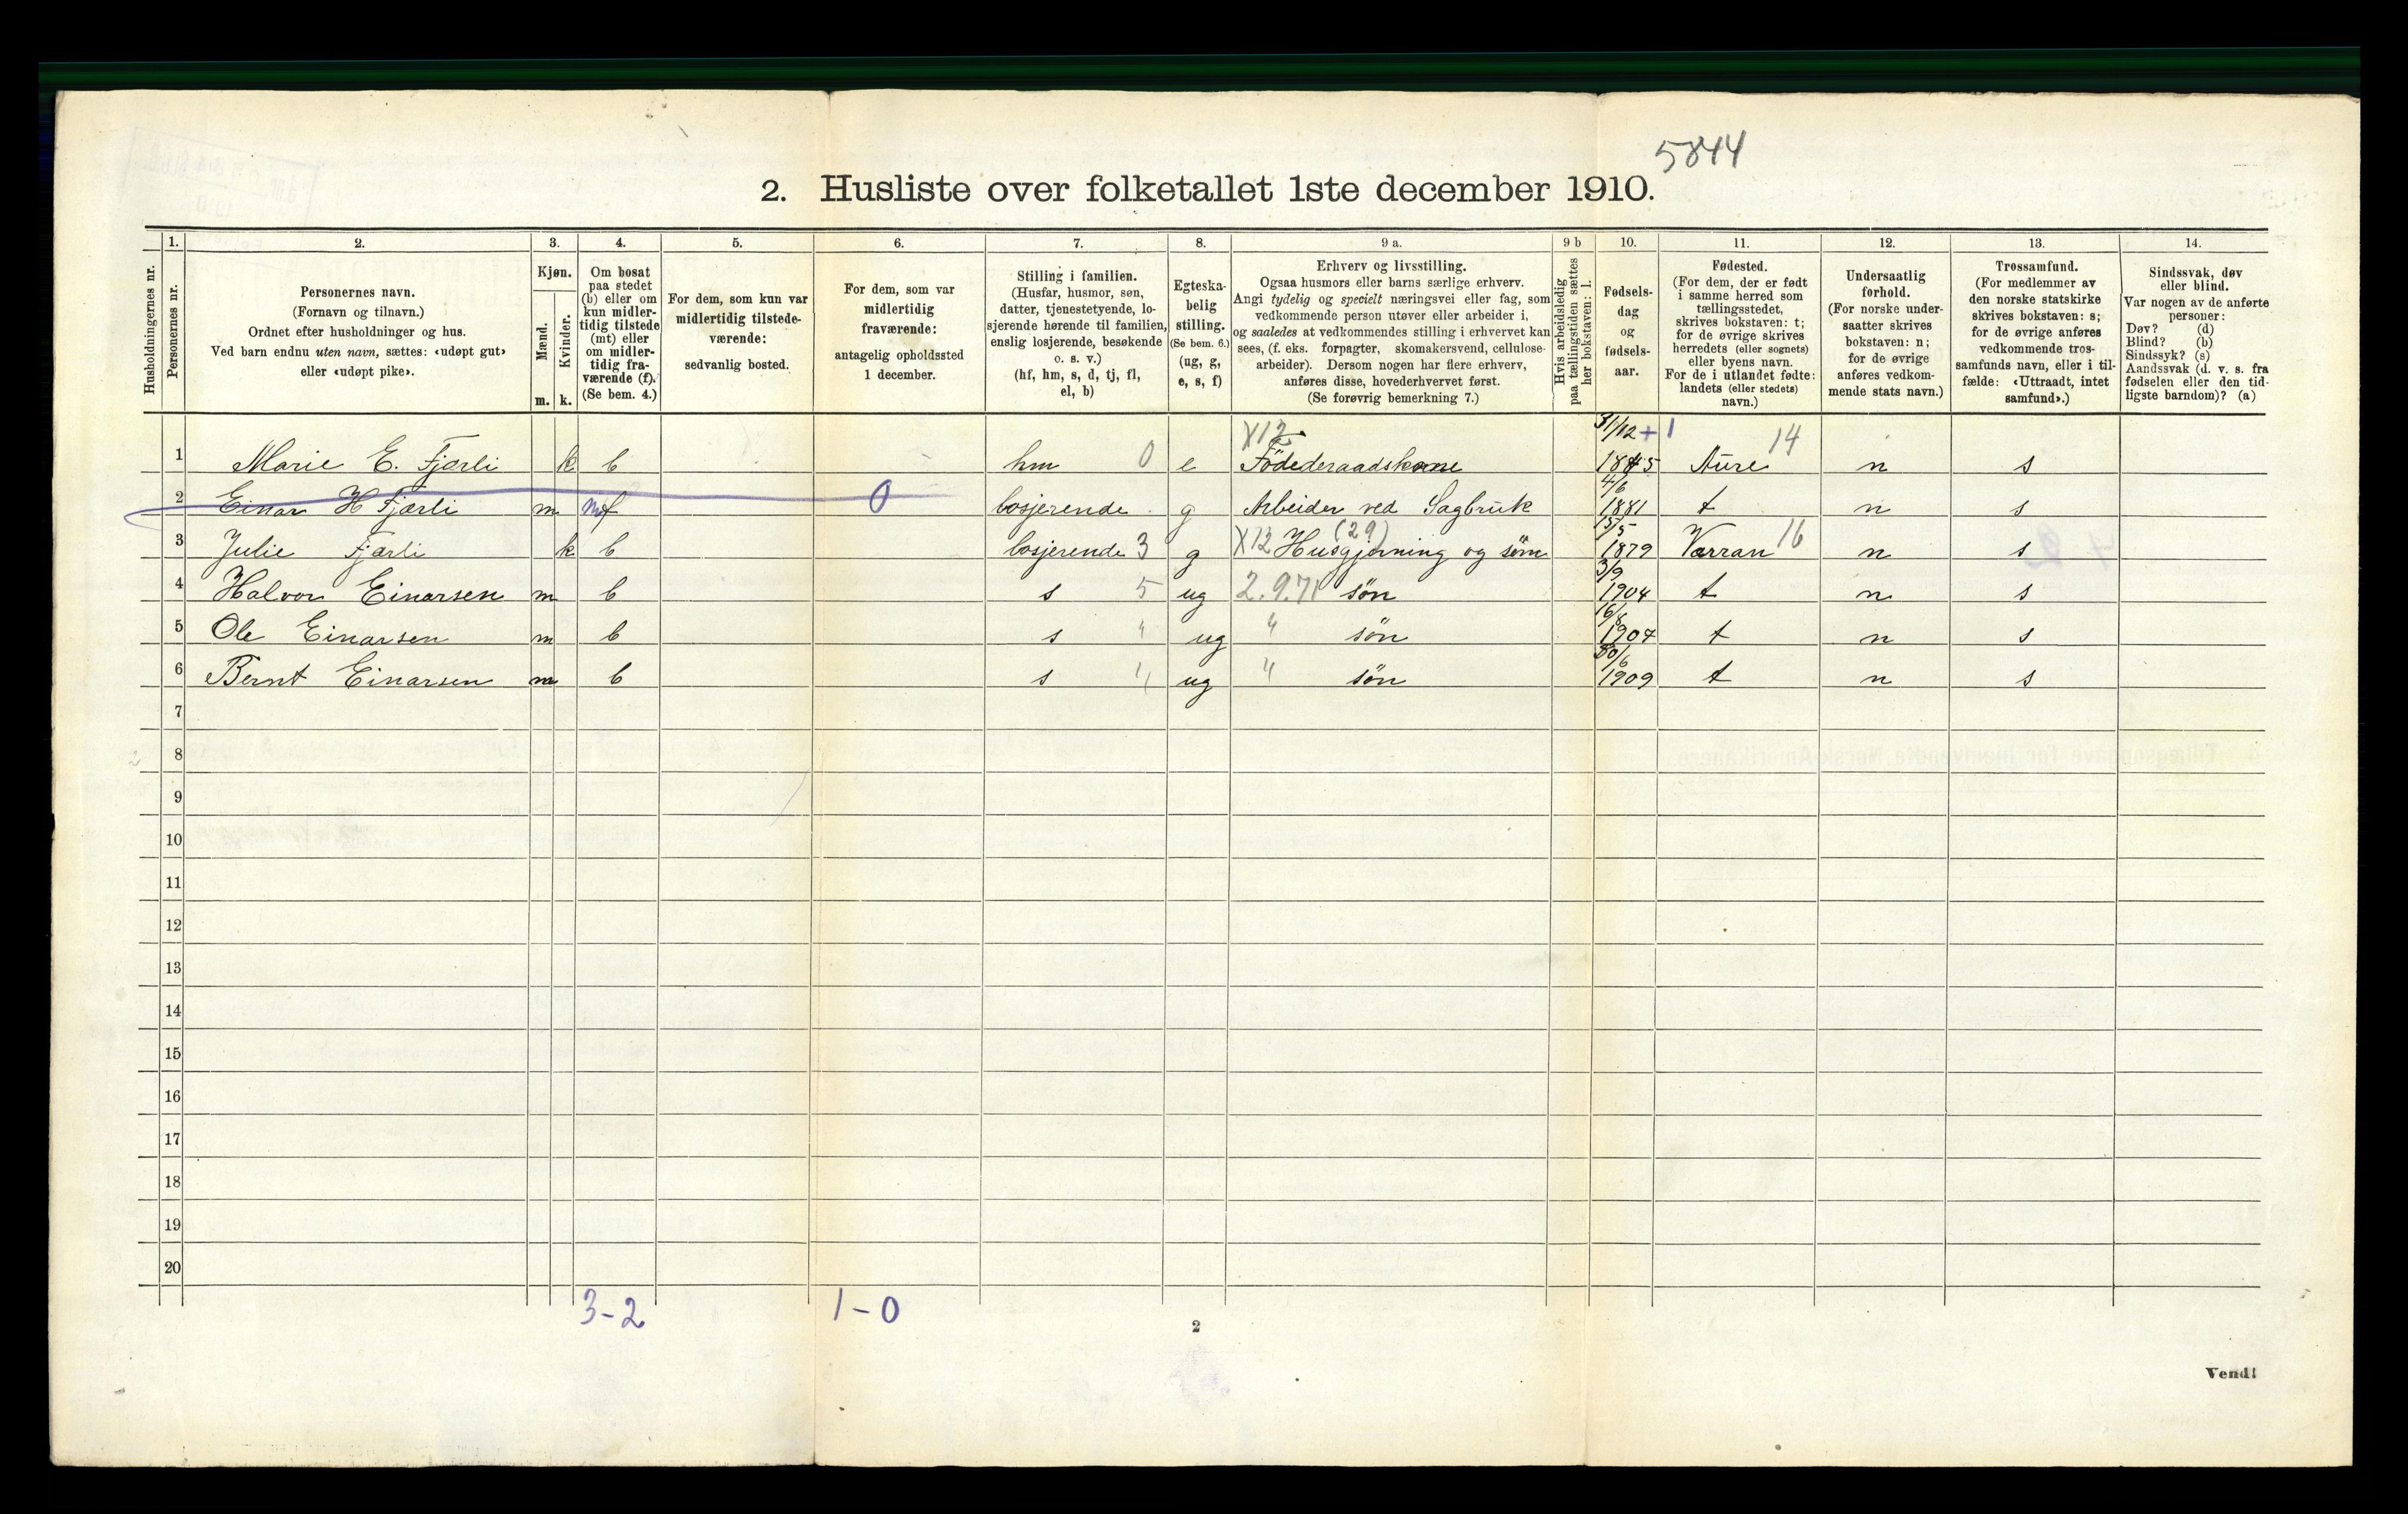 5844
2. Husliste over folketallet 1ste december 1910.
1. 2. 3. 4. 5. 6. 7. 8. 9 a. 9 b 10. 11. 12. 13. 14.
Husholdningernes nr.
Personernes nr.
Personernes navn.
(Fornavn og tilnavn.)
Ordnet efter husholdninger og hus.
Ved barn endnu uten navn, sættes: «udøpt gut»
eller «udøpt pike».
Kjøn.
Mænd.
Kvinder.
m. k.
Om bosat
paa stedet
(b) eller om
kun midler-
tidig tilstede
(mt) eller
om midler-
tidig fra-
værende (f).
(Se bem. 4.)
For dem, som kun var
midlertidig tilstede-
værende:
sedvanlig bosted.
For dem, som var
midlertidig
fraværende:
antagelig opholdssted
1 december.
Stilling i familien.
(Husfar, husmor, søn,
datter, tjenestetyende, lo-
sjerende hørende til familien,
enslig losjerende, besøkende
o. s. v.)
(hf, hm, s, d, tj, fl,
el, b)
Egteska-
belig
stilling.
(Se bem. 6.)
(ug, g,
e, s, f)
Erhverv og livsstilling.
Ogsaa husmors eller barns særlige erhverv.
Angi tydelig og specielt næringsvei eller fag, som
vedkommende person utøver eller arbeider i,
og saaledes at vedkommendes stilling i erhvervet kan
sees, (f. eks. forpagter, skomakersvend, cellulose-
arbeider). Dersom nogen har flere erhverv,
anføres disse, hovederhvervet først.
(Se forøvrig bemerkning 7.)
Hvis arbeidsledig
paa tællingstiden sættes
her bokstaven: l.
Fødsels-
dag
og
fødsels-
aar.
Fødested.
(For dem, der er født
i samme herred som
tællingsstedet,
skrives bokstaven: t;
for de øvrige skrives
herredets (eller sognets)
eller byens navn.
For de i utlandet fødte:
landets (eller stedets)
navn.)
Undersaatlig
forhold.
(For norske under-
saatter skrives
bokstaven: n;
for de øvrige
anføres vedkom-
mende stats navn.)
Trossamfund.
(For medlemmer av
den norske statskirke
skrives bokstaven: s;
for de øvrige anføres
vedkommende tros-
samfunds navn, eller i til-
fælde: «Uttraadt, intet
samfund».)
Sindssvak, døv
eller blind.
Var nogen av de anførte
personer:
Døv? (d)
Blind? (b)
Sindssyk? (s)
Aandssvak (d. v. s. fra
fødselen eller den tid-
ligste barndom)? (a)
X12 31/12 + 1 14
1 Marie E. Fjærli k b hm 0 e Födederaadskone 1845 Aure n s
4/6
2 Einar H Fjærli m f 0 losjerende g Arbeider ved Sagbruk 1881 t n s
(29) 15/5
3 Julie Fjærli k b losjerende 3 g X12 Husgjerning og söm 1879 Værran 16 n s
3/9
4 Halvor Einarsen m b s 5 ug 2.9.71 sön 1904 t n s
16/8
5 Ole Einarsen m b s " ug " sön 1907 t n s
30/6
6 Bernt Einarsen m b s " ug " sön 1909 t n s
7
8
9
10
11
12
13
14
15
16
17
18
19
20
3-2 1-0
2
Vend!